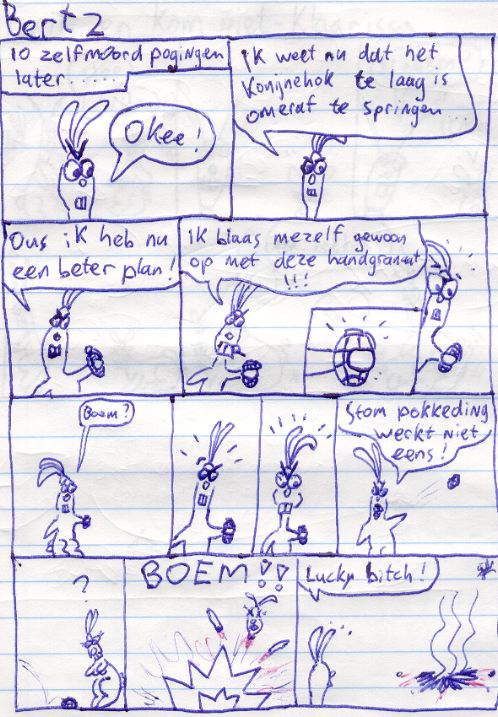 Bert 2
10 zelfmoord pogingen
later.....
Okee!
ik weet nu dat het
Konijnehok te laag is
omeraf te springen...
Dus ik heb nu
een beter plan!
ik blaas mezelf gewoon
op met deze handgranaat
!!!
Boem?
Stom pokkeding
werkt niet
eens!
?
BOEM!!
Lucky bitch!